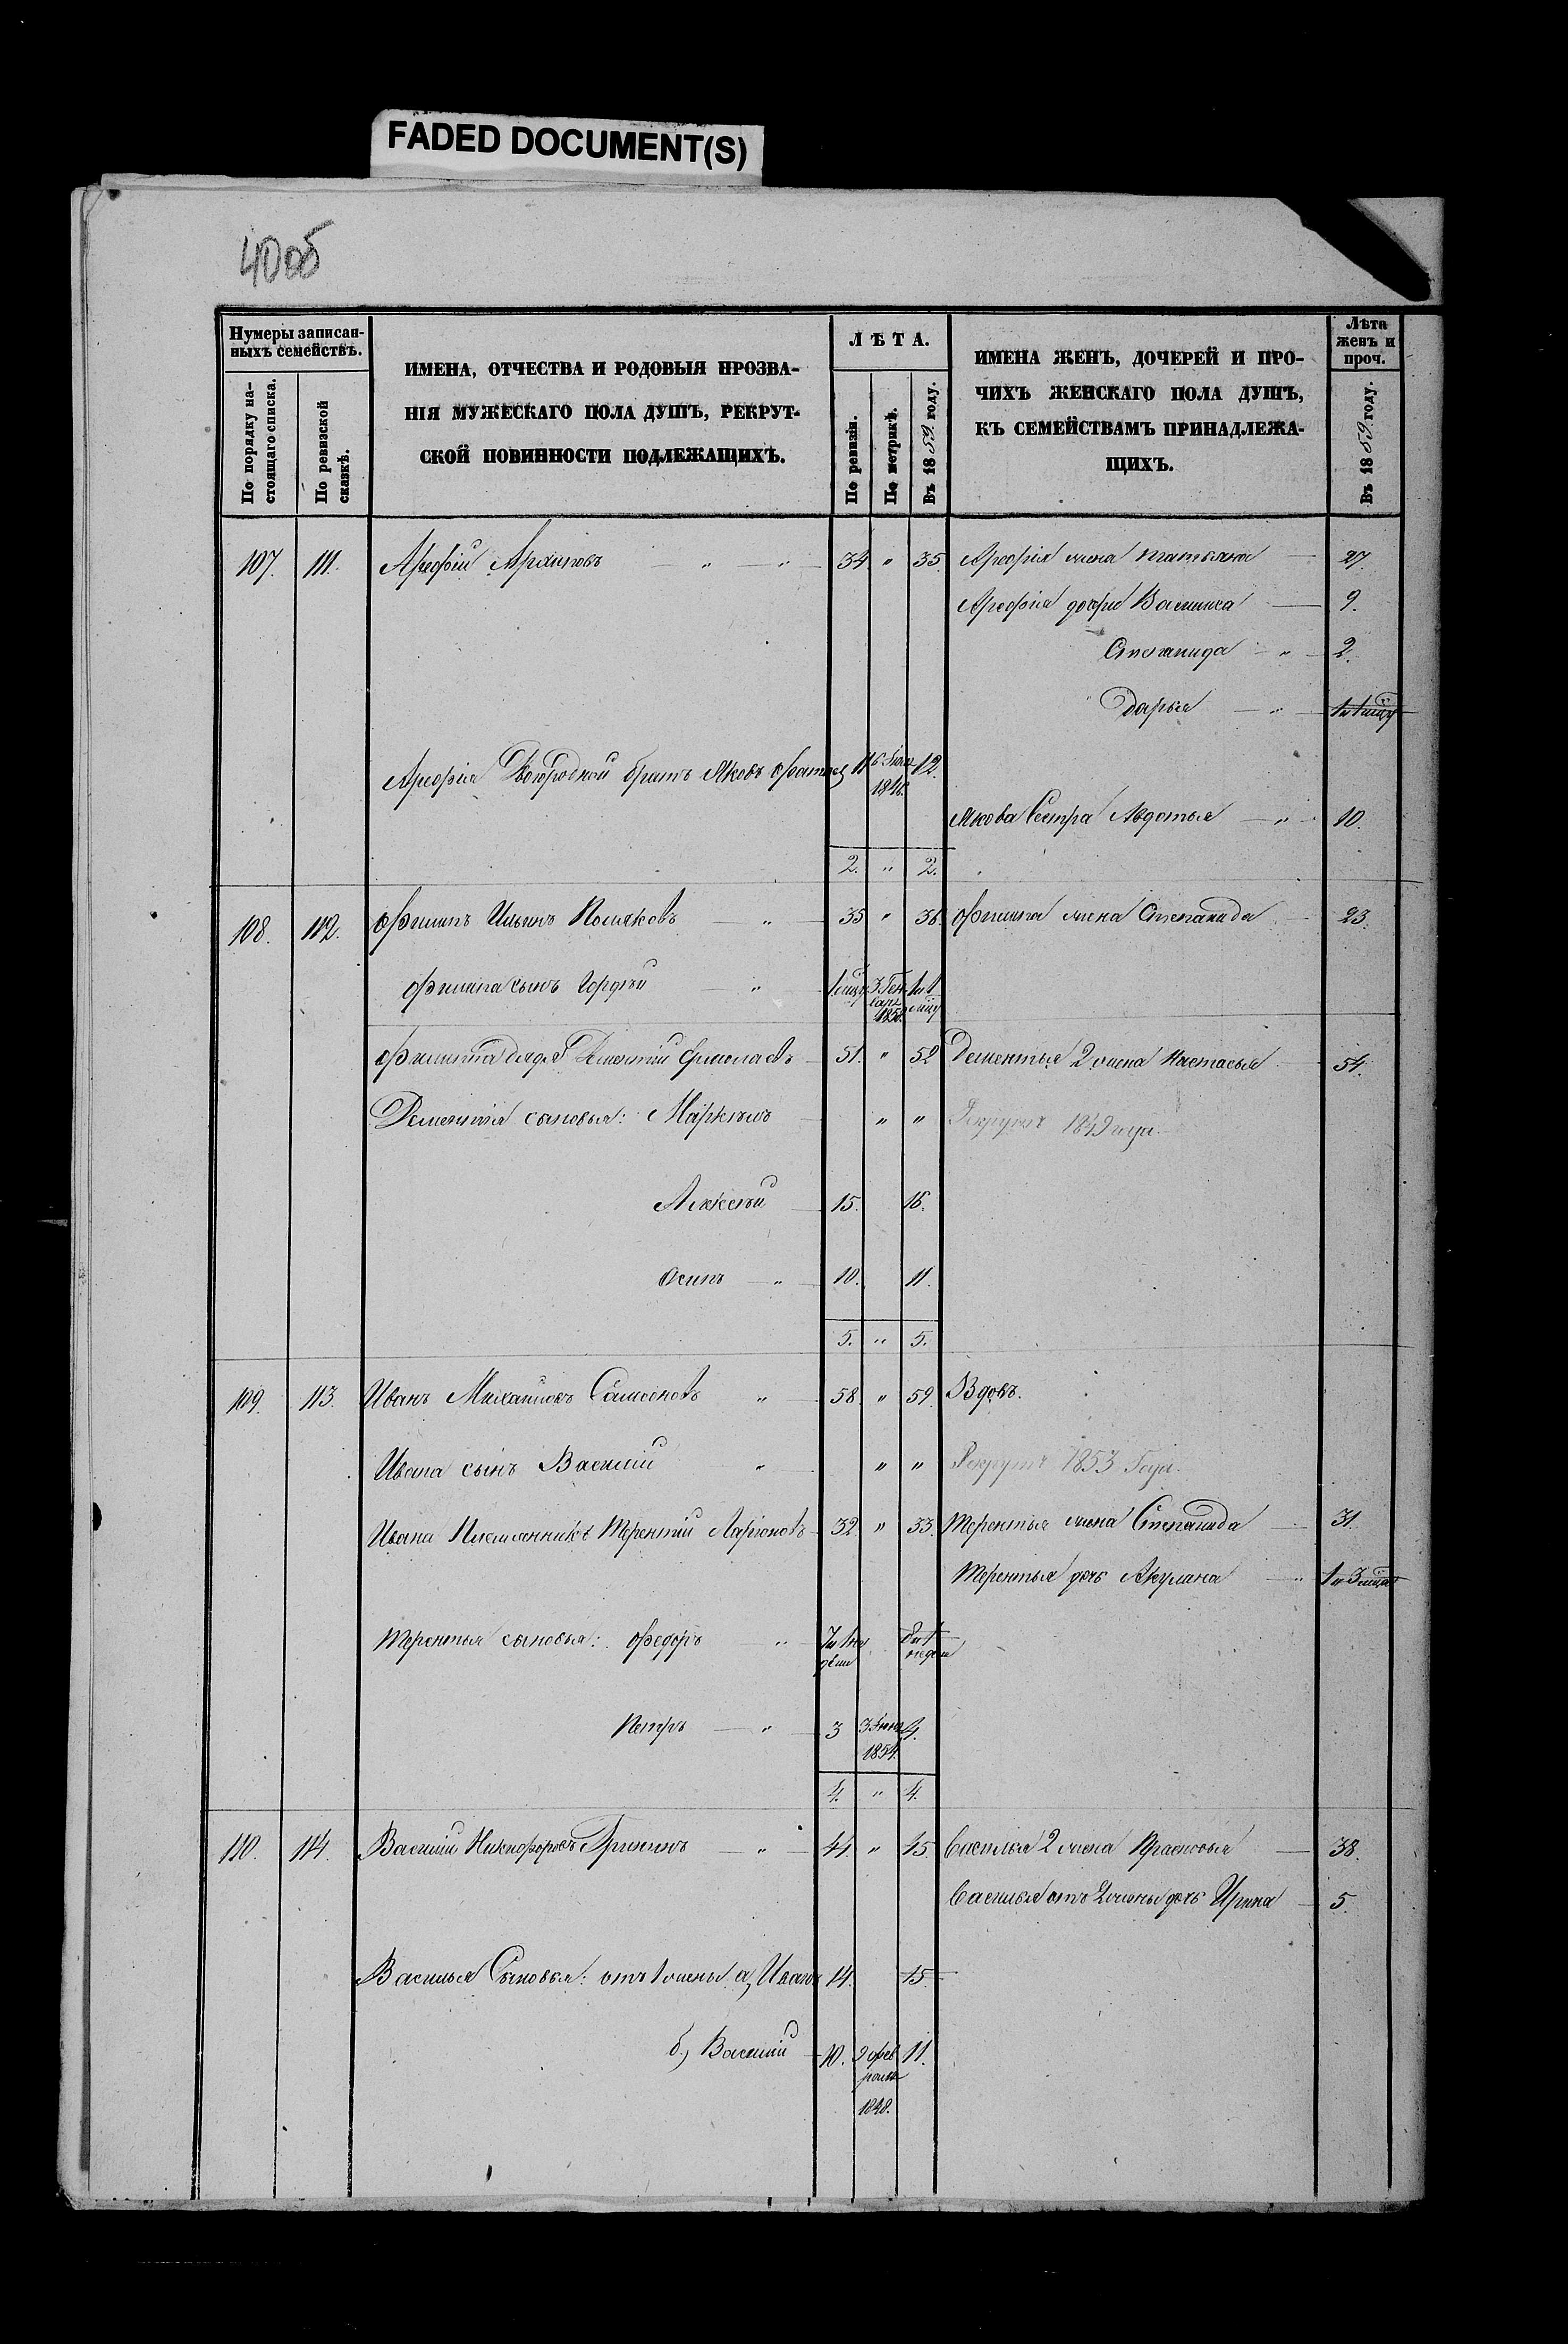 FADED DOCUMENT(S)
40об
Нумеры записан-
ныхъ семействъ.
По порядку на-
стоящаго списка.
По ревизской
сказкѣ.
ИМЕНА, ОТЧЕСТВА И РОДОВЫЯ ПРОЗВА-
НІЯ МУЖЕСКАГО ПОЛА ДУШЪ, РЕКРУТ-
СКОЙ ПОВИННОСТИ ПОДЛЕЖАЩИХЪ.
ЛѢТА.
По ревизіи.
По метрикѣ.
Въ 1859 году.
ИМЕНА ЖЕНЪ, ДОЧЕРЕЙ И ПРО-
ЧИХЪ ЖЕНСКАГО ПОЛА ДУШЪ,
КЪ СЕМЕЙСТВАМЪ ПРИНАДЛЕЖА-
ЩИХЪ.
Лѣта
женъ и
проч.
Въ 1859 году.
107. 111. Арефій Архиповъ " " 34 " 35. Арефія жена Татьяна 27.
Арефія дочри Василиса 9.
Степанида " 2.
Дарья "
Арефія Двоюродной братъ Яковъ 11 1846. 12.
Якова Сестра Авдотья " 10.
2. " 2.
108. 112. Филипъ Ильинъ Поляковъ " 35 " 36. Филипа жена Степанида 23.
Филипа сынъ Гордѣй " 3. Ген варя 1858.
Филиппа дядя Дементій Ермолаевъ 51. " 52 Дементья 2 жена Настасья 54.
Дементія сыновья: " " Рекрутъ 1849 года.
Алексѣй 15. 16.
Осипъ " 10. 11.
5. " 5.
109. 113. Иванъ Михайловъ Самсоновъ " 58. " 59. Вдовъ.
Ивана сынъ Василій " " " Рекрутъ 1853 Года.
Ивана Племянникъ Терентій Ларіоновъ 32 " 33. Терентья жена Степанида 31.
Терентья дочь Акулина " 1 и 3 мѣся
Терентья сыновья: Федоръ "
Петръ " 3 1854. 4.
4. " 4.
110. 114. Василій Никифоровъ Гришинъ " 44. " 45. Василья 2 жена Прасковья 38.
Василья отъ 2 жены дочь Ирина 5.
Василья Сыновья: отъ 1 жены а, Иванъ 14. 15.
б, Василій 10. 9 фев раля 1848. 11.